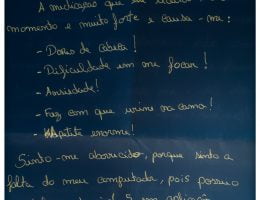 A medicação que
momento e muito forte e causa-me:
- Dores de cabeça!
- Dificuldade em me focar!
- Ansiedade!
- Faz com que urine na cama!
- Apetite enorme!
Sinto-me aborrecido, porque sinto a
falta do meu computador, pois possuo
5 em aplicação